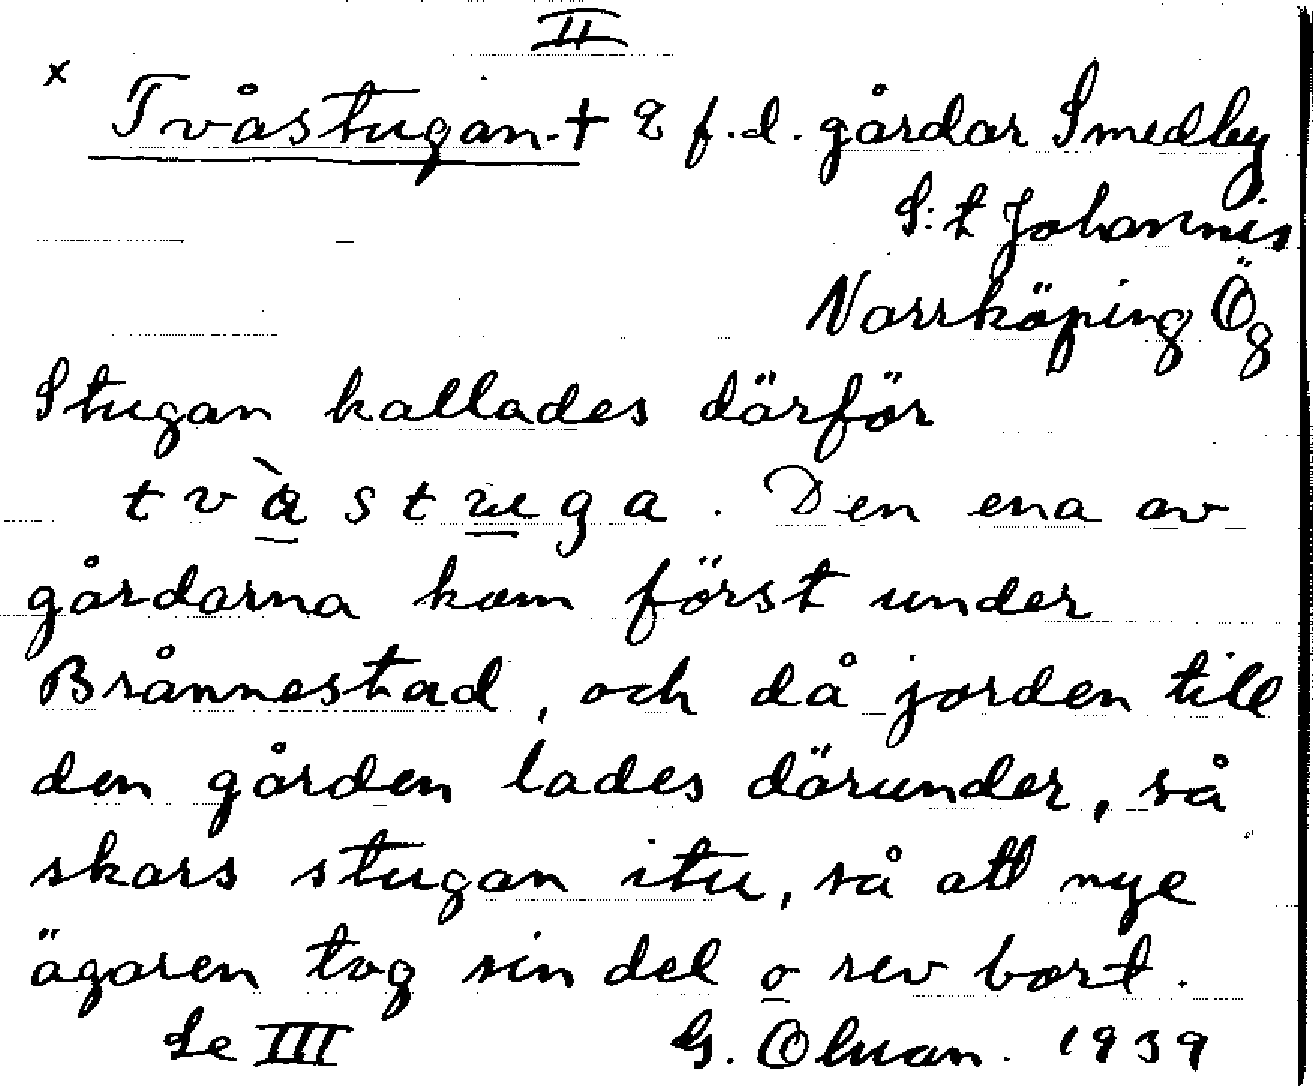 II
x Tvåstugan. † 2 f.d. gårdar Smedby
S:t Johannis
Norrköping Ög
Stugan kallades därför
två̀stuga. Den ena av
gårdarna kom först under
Brånnestad, och då jorden till
den gården lades därunder, så
skars stugan itu, så att nye
ägaren tog sin del o rev bort.
Se III G. Olman. 1939